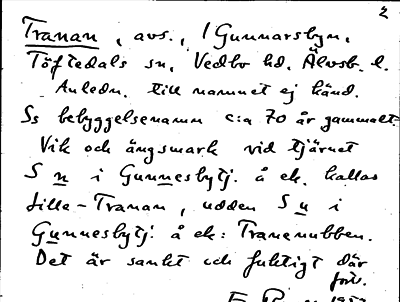 2
Tranan, avs., / Gunnarsbyn,
Töftedals sn, Vedbo hd. Älvsb. l.
Anledn. till namnet ej känd.
Ss bebyggelsenamn c:a 70 år gammalt.
Vik och ängsmark vid tjärnet
S n i Gunnesbytj. å ek. kallas
Lilla-Tranan, udden S n i
Gunnesbytj. å ek: Tranenubben.
Det är sankt och fuktigt där
förv.